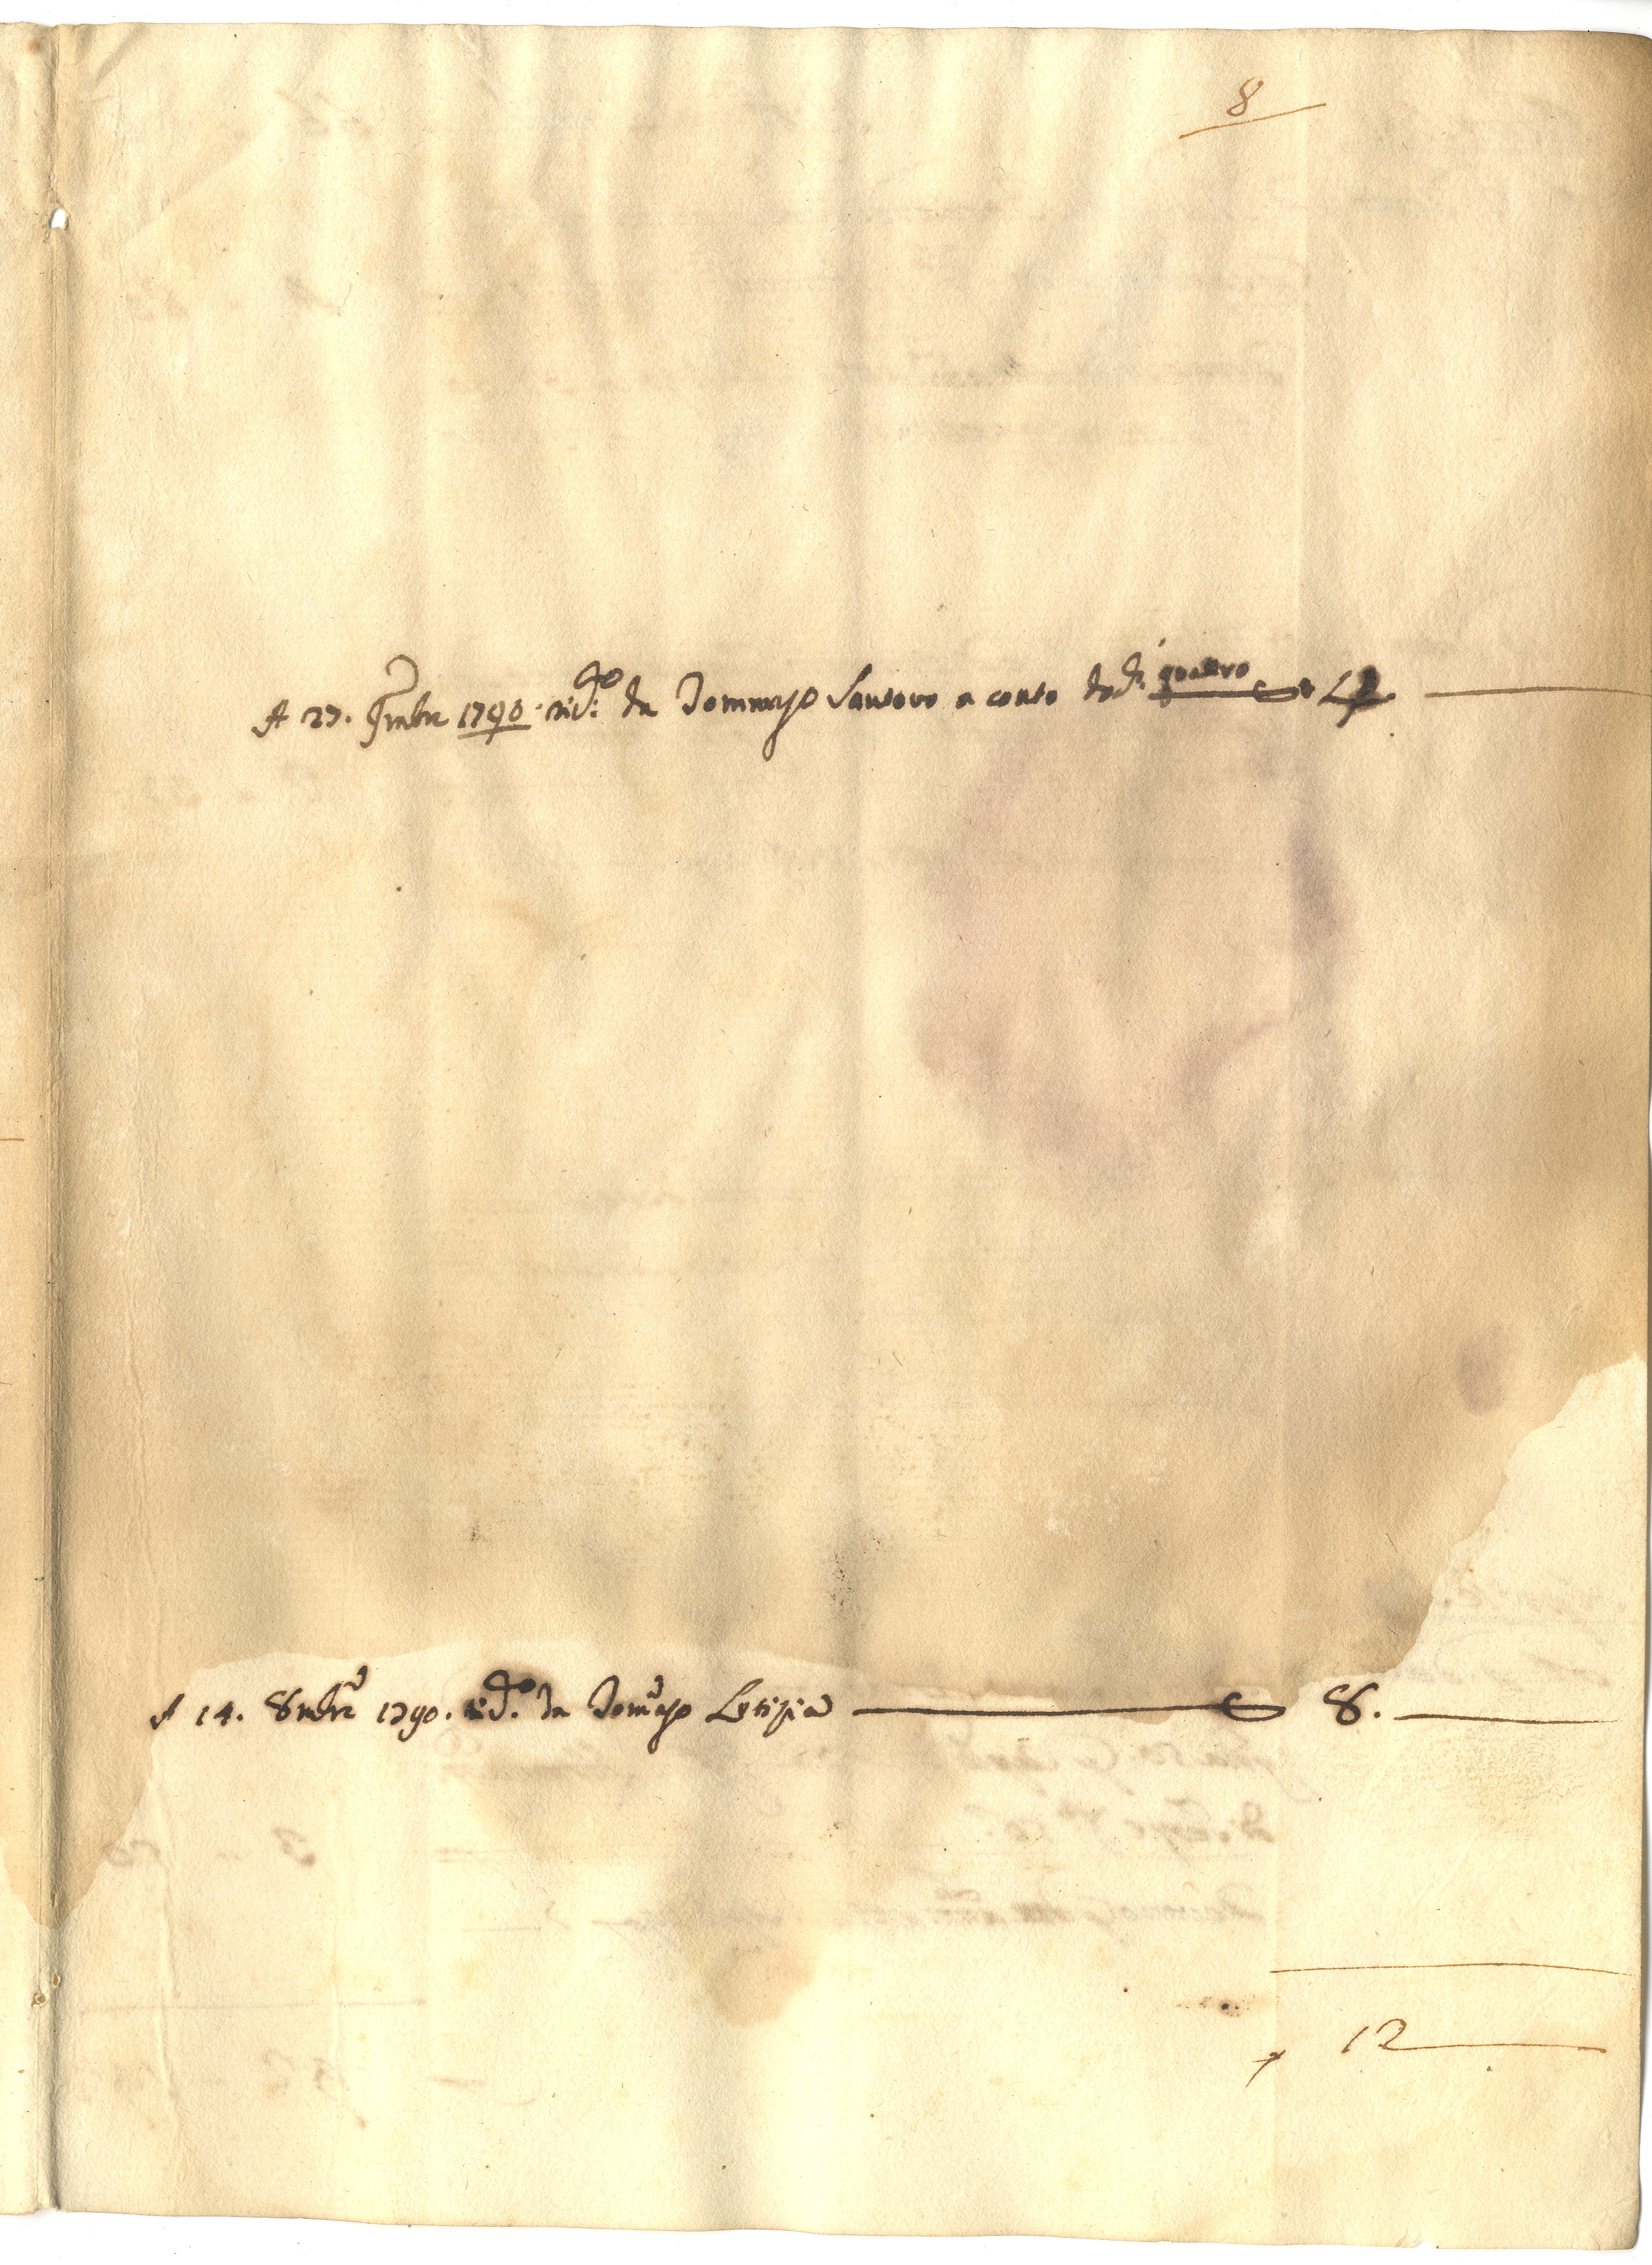 8
A 27. 9mbre 1790. ric.do da Dommaso Santoro a conto do. di quattro 4
A 14. 8mbre 1790. ric.do da Dommaso Letizia 8.
12